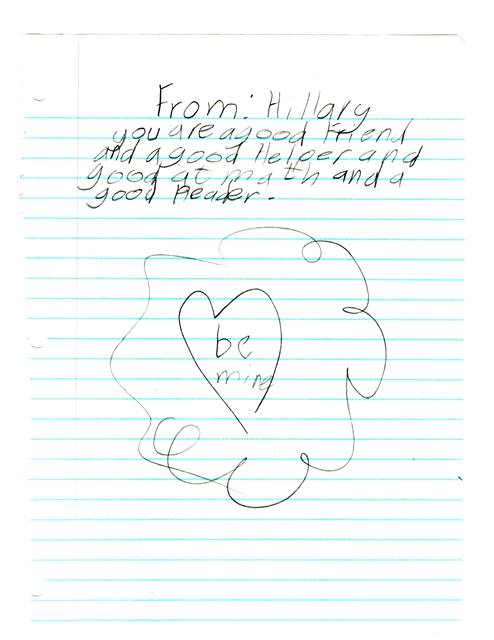 From: Hillary
you are a good Friend
and a good Helper and
good at math and a
good Reader.
be
mine